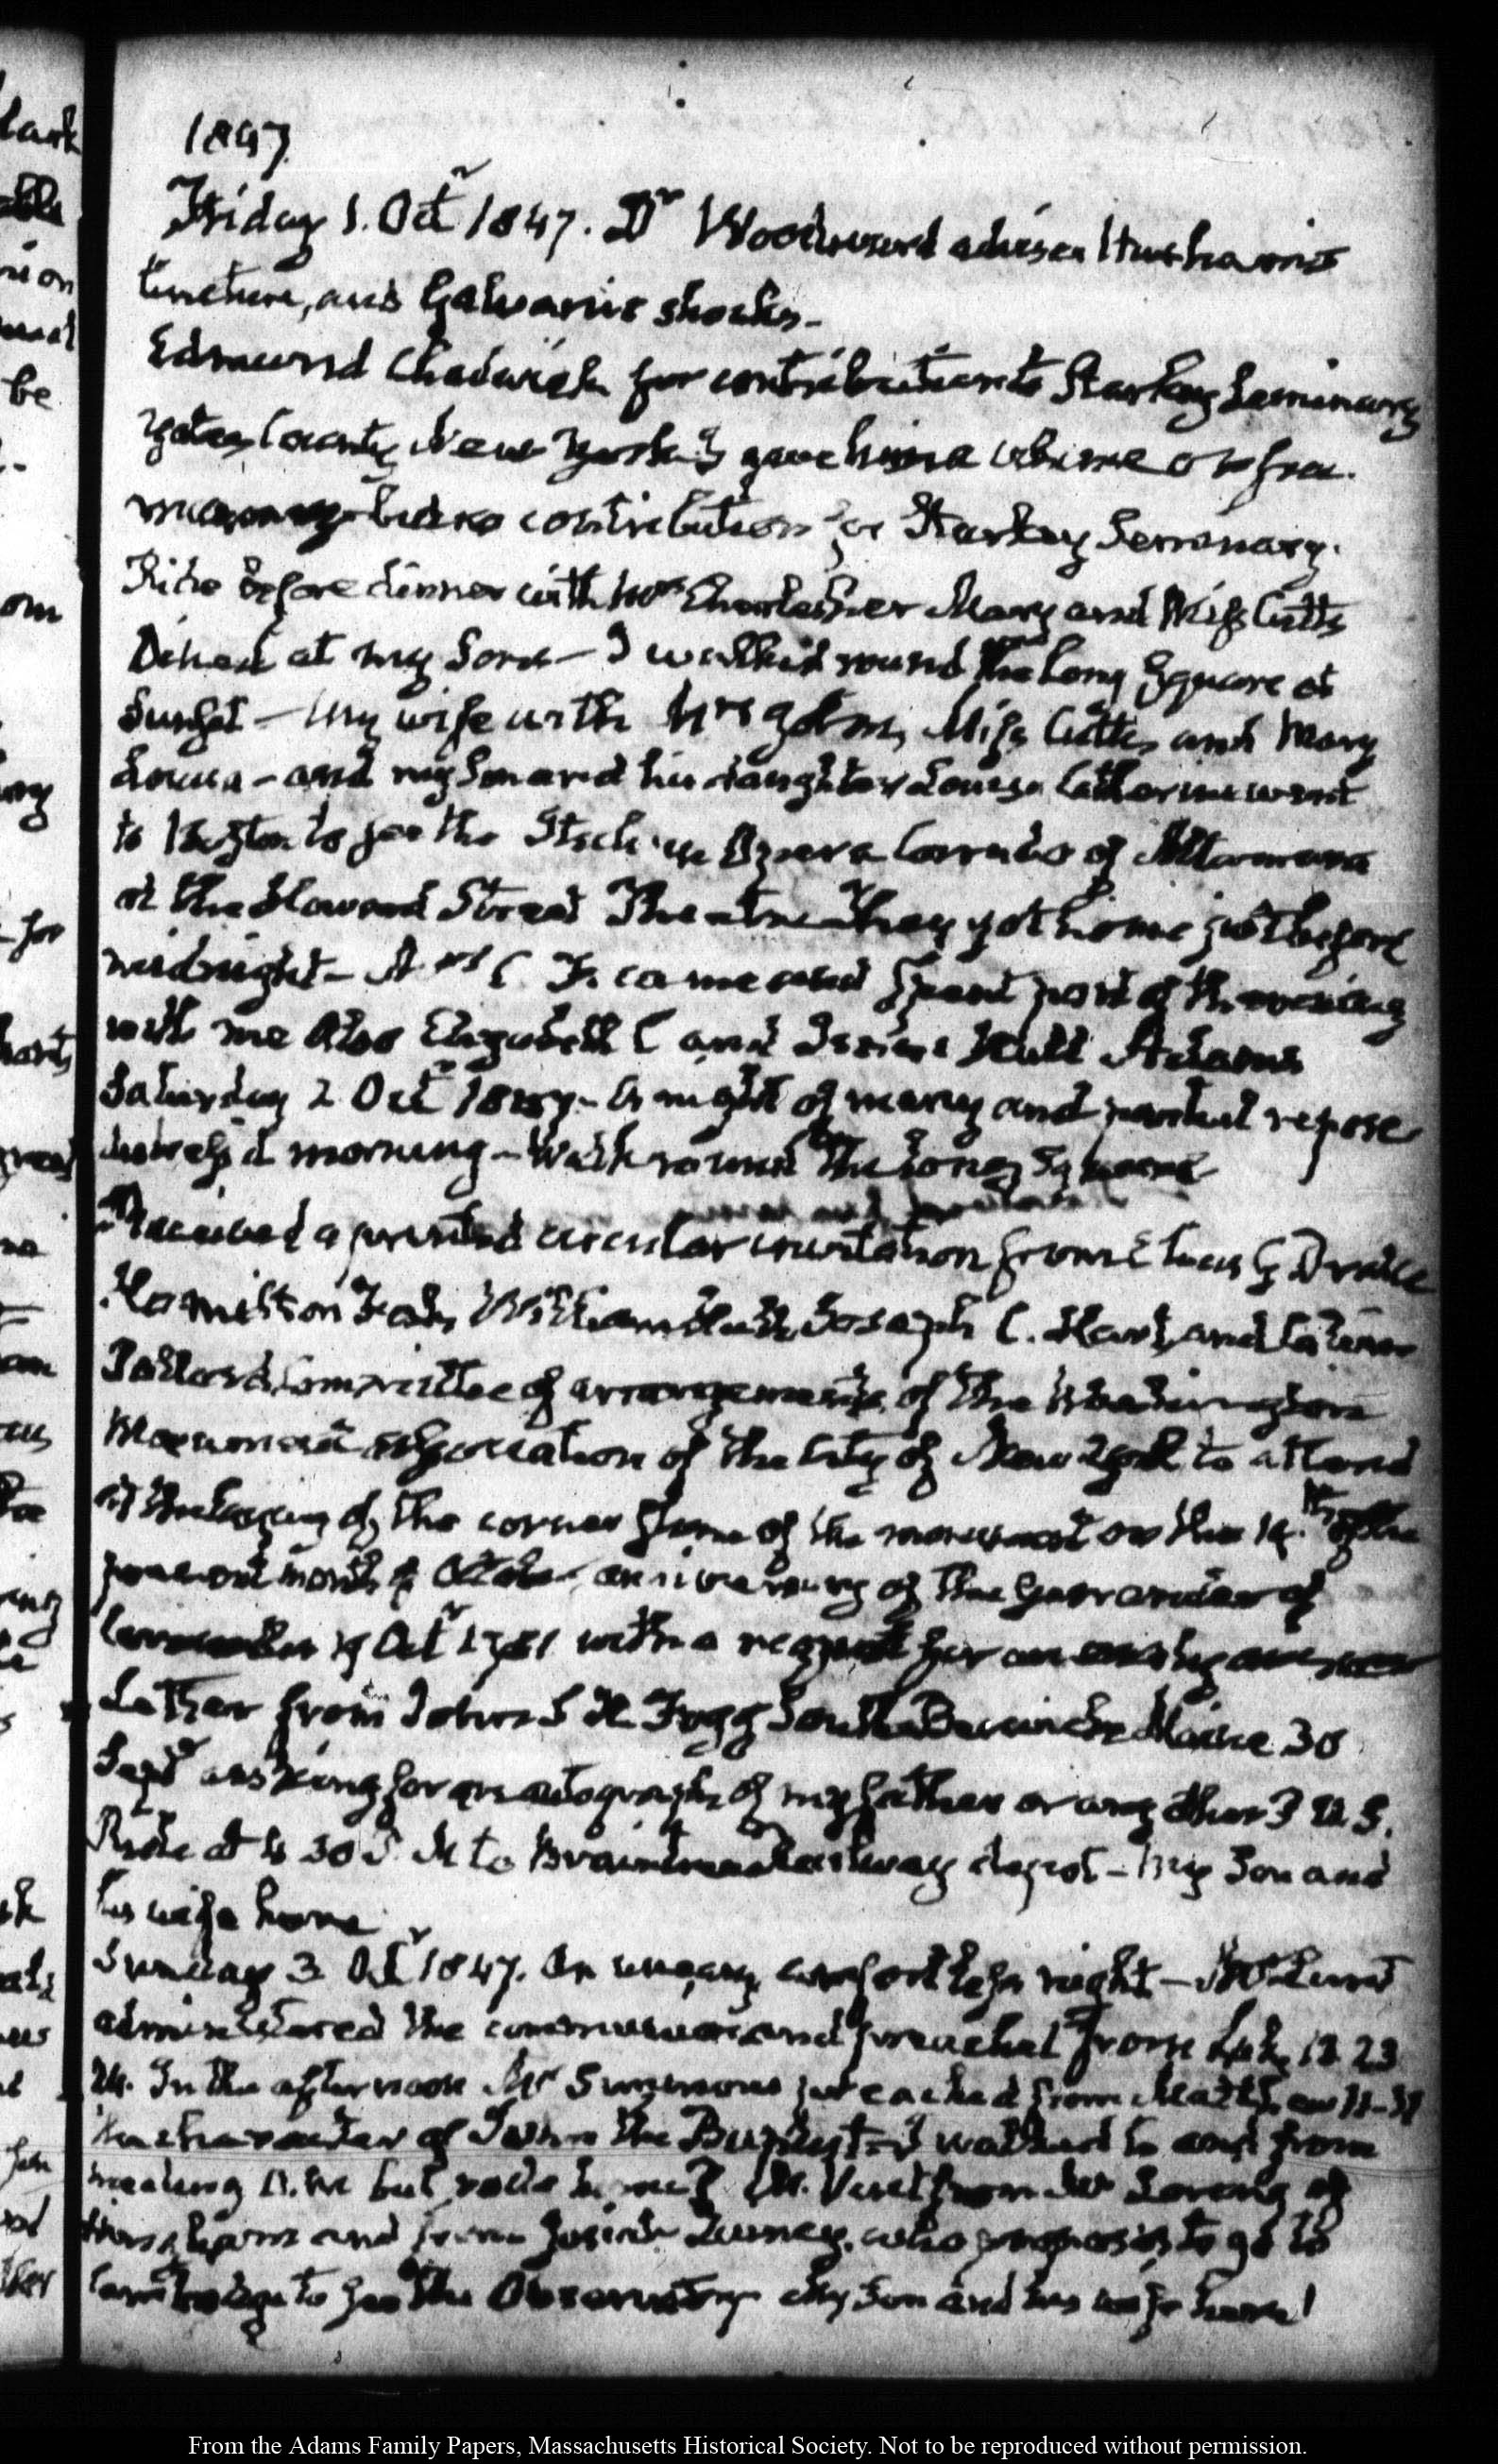 1847.
Friday 1. Octr 1847. Dr Woodward advises
tincture, and Galvanic shocks-
Edmund Chadwick for contributions to Starkey Seminary
Yates County New York. I gave him a
many contribution for Starkey Seminary.
Ride before dinner with Mrs Charles, her Mary and Miss Cutts
Dined at my Sons - I walked round the long Square at
Sunset - My wife with Mrs John, Miss Cutts, and Mary
Louisa - and my Son and his daughter Louisa Catherine went
to Boston to see the Opera of
at the Howard Street Theatre They got home just before
midnight - Mrs C. F. came and spent part of the evening
with me Also Elizabeth C and Isaac Hull Adams
Saturday 2 Octr 1847 - A night of and partial repose
morning - Walk round the long Square
Received a printed circular invitation from
Hamilton Fish, William Joseph C. Hart, and
Committee of arrangements of the Washington
Monument association of the City of New York to attend
at the laying of the corner stone of the monument on the 19.th of the
present month of October, anniversary of the Surrender of
Cornwallis 19 Octr 1781 with a request for an early answer
Letter from John S H Fogg South Berwick Maine 30
Septr asking for an autograph of my father or any other P U.S.
Ride at 4 30 P. M to Braintree Railway depot - My Son and
his wife here
Sunday 3 Octr 1847. An uneasy, comfortless night - Mr Lunt
administered the communion and preached from Luke 12 23
24. In the afternoon Mr Simmons preached from Matthew 11-11
the character of John the Baptist - I walked to and from
meeting A.M but rode home P. M. Visit from Mr Loring of
Hingham and from Josiah Quincy, who proposes to go to
Cambridge to see the Observatory My Son and his wife here
From the Adams Family Papers, Massachusetts Historical Society. Not to be reproduced without permission.